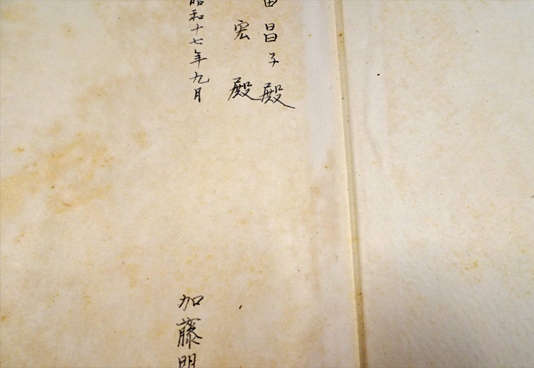 田昌子殿
宏殿
昭和十七年九月
加藤明